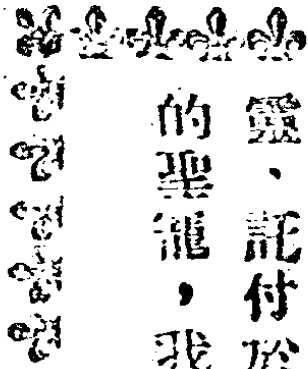 靈、託付於
的聖寵，我